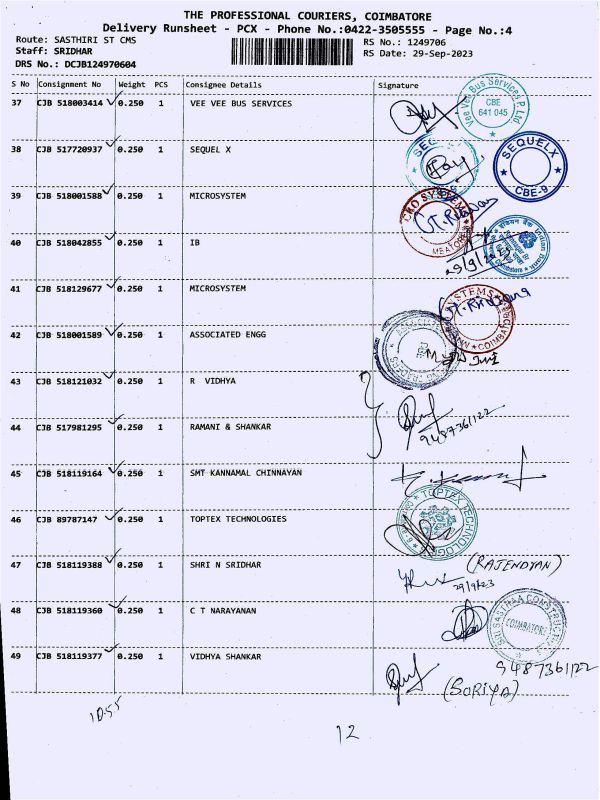 THE PROFESSIONAL COURIERS, COIMBATORE
Delivery Runsheet - PCX - Phone No.:0422-3505555 - Page No.:4
Route: SASTHIRI ST CMS
RS No.: 1249706
Staff: SRIDHAR
RS Date: 29-Sep-2023
DRS No.: DCJB124970604
S No Consignment No Weight PCS Consignee Details Signature
37 CJB 518003414 ✓ 0.250 1 VEE VEE BUS SERVICES
Vee Vee Bus Services P. Ltd
CBE
641 045
38 CJB 517720937 ✓ 0.250 1 SEQUEL X
SEQUELX
CBE-9
39 CJB 518001588 ✓ 0.250 1 MICROSYSTEM
40 CJB 518042855 ✓ 0.250 1 IB
Indian Bank
29/9/2023
41 CJB 518129677 ✓ 0.250 1 MICROSYSTEM
42 CJB 518001589 ✓ 0.250 1 ASSOCIATED ENGG
43 CJB 518121032 ✓ 0.250 1 R VIDHYA
44 CJB 517981295 ✓ 0.250 1 RAMANI & SHANKAR
9487361122
45 CJB 518119164 ✓ 0.250 1 SMT KANNAMAL CHINNAYAN
46 CJB 89787147 ✓ 0.250 1 TOPTEX TECHNOLOGIES
TOPTEX TECHNOLOGIES
47 CJB 518119388 ✓ 0.250 1 SHRI N SRIDHAR
(RAJENDYAN)
29/9/23
48 CJB 518119360 ✓ 0.250 1 C T NARAYANAN
SRI SASTHAA CONSTRUCTIONS
COIMBATORE
49 CJB 518119377 ✓ 0.250 1 VIDHYA SHANKAR
9487361122
(SORIYA)
10.55
12